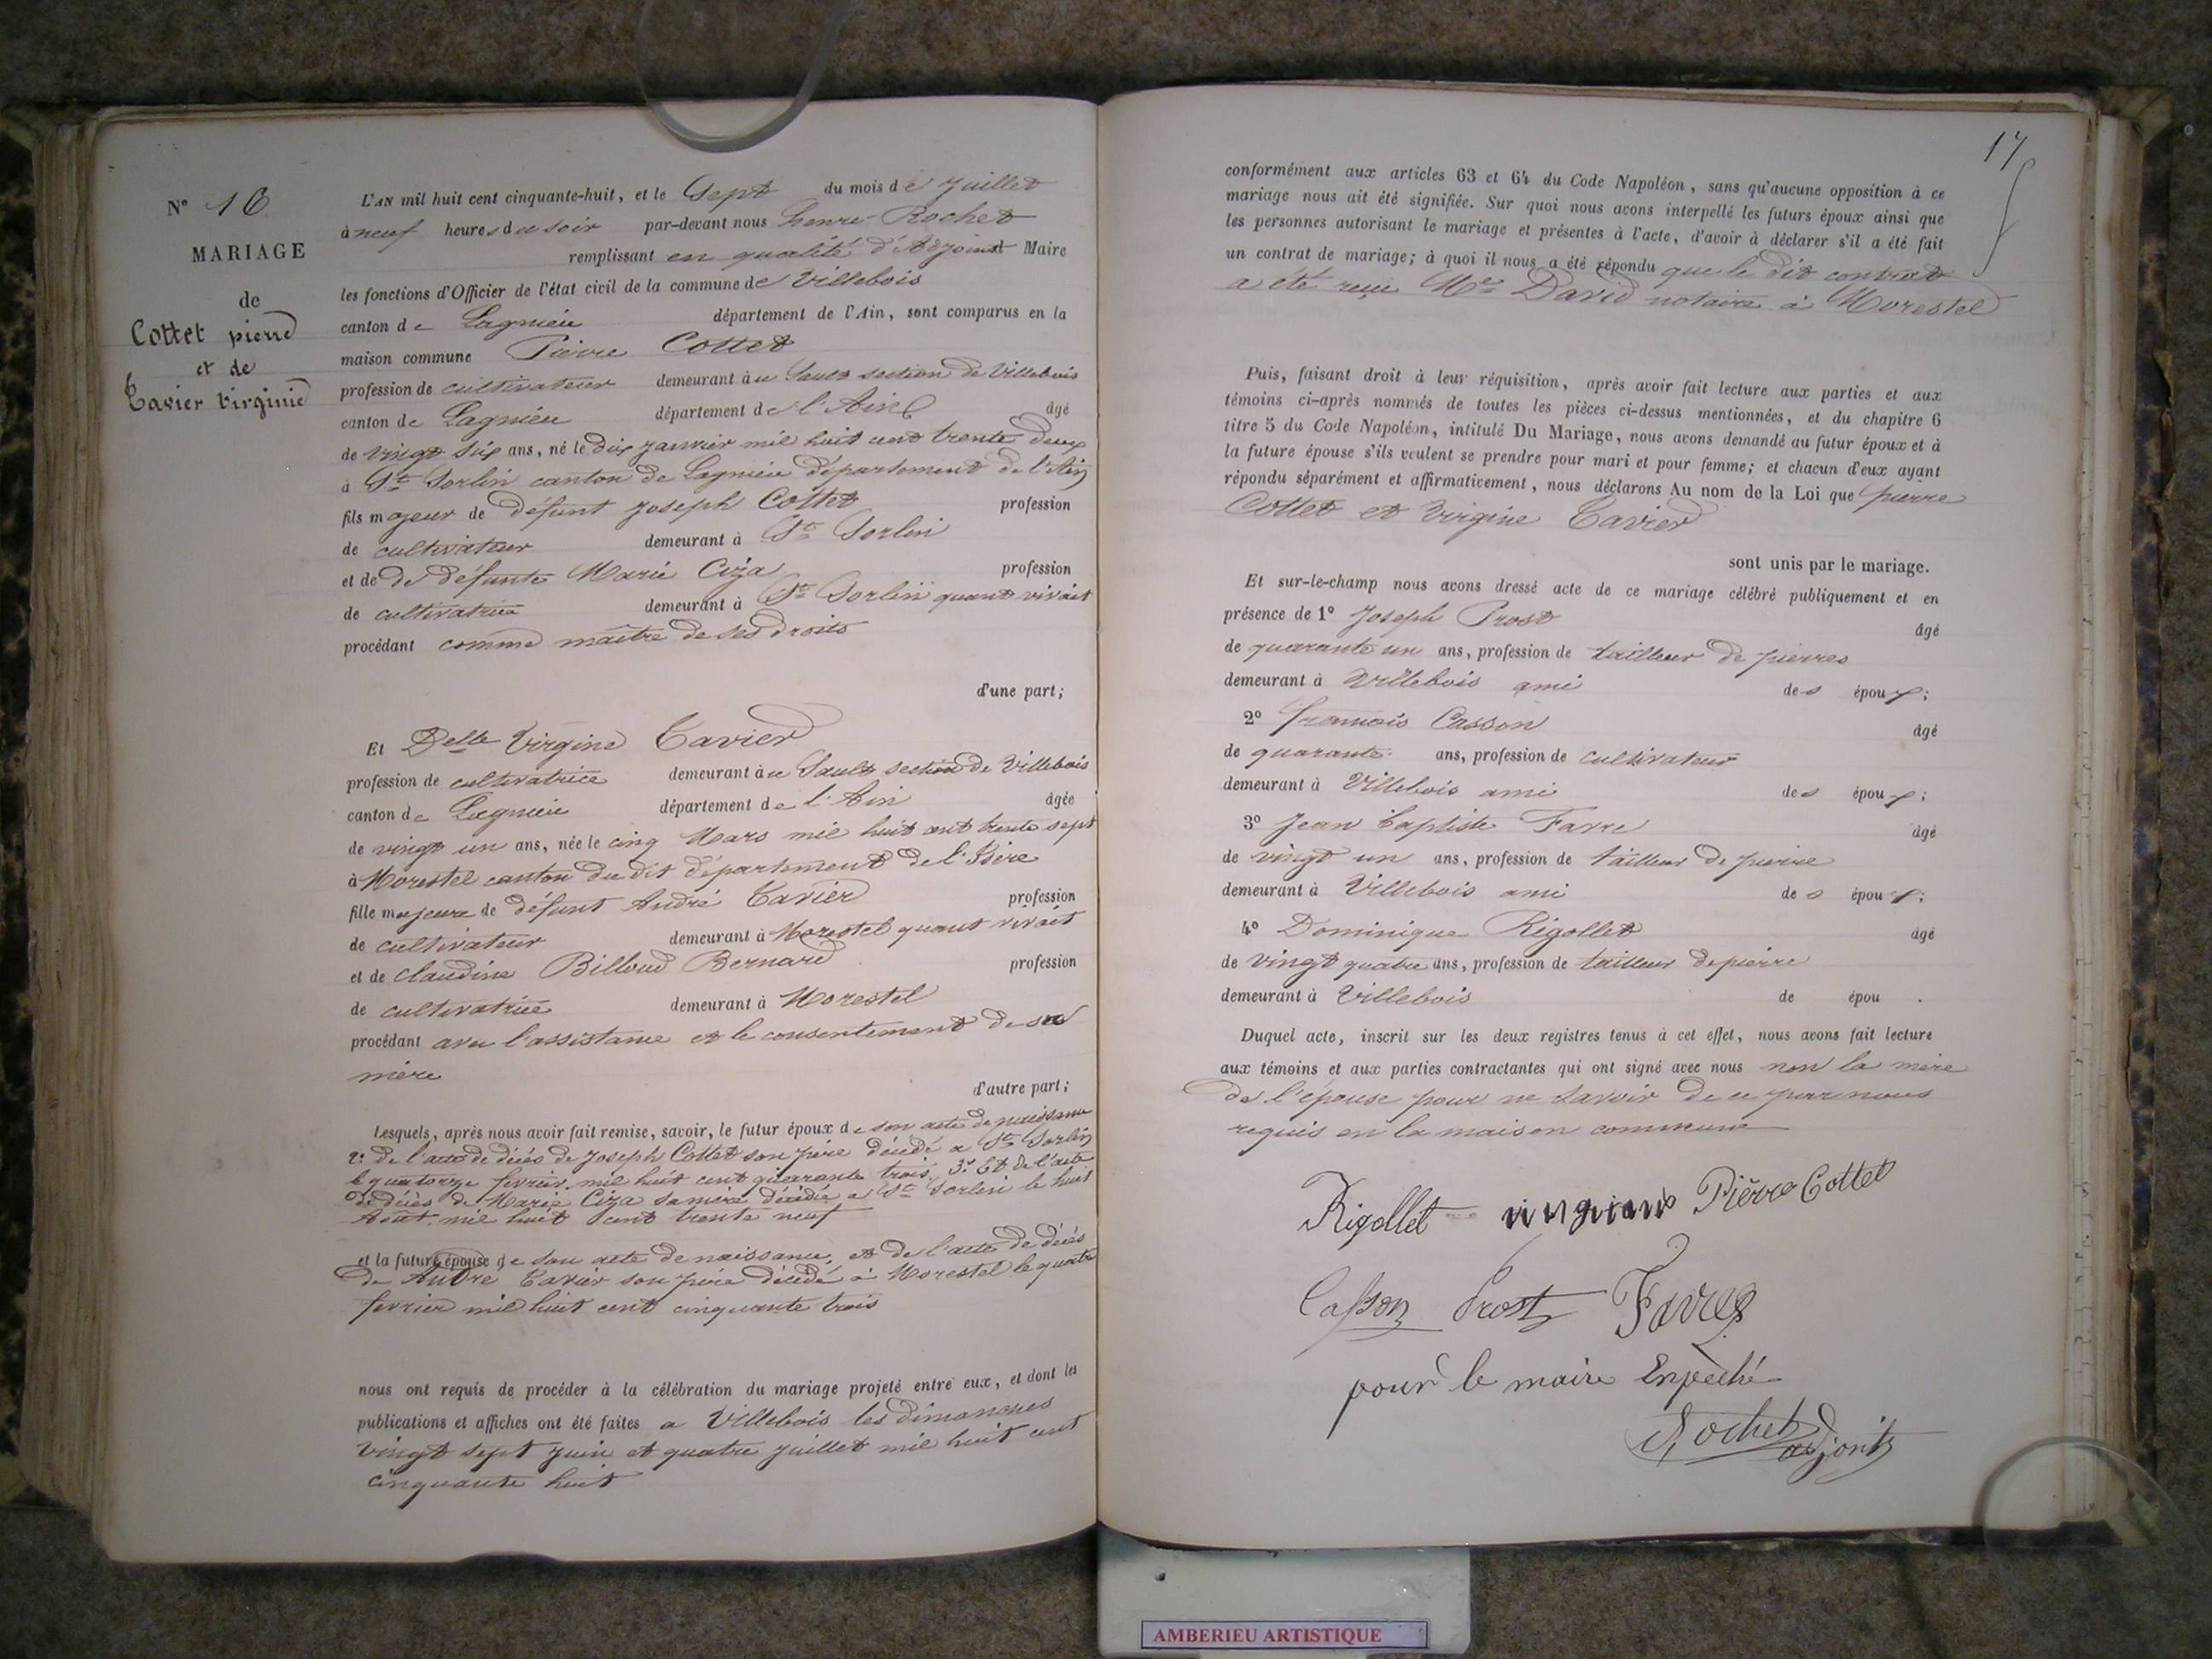 N° 16
MARIAGE
de
Cottet pierre
et de
Tavier Virginie
L'AN mil huit cent cinquante-huit, et le Sept du mois de Juillet
à neuf heures du soir par-devant nous henri Rochet
remplissant en qualité d'Adjoint Maire
les fonctions d'Officier de l'état civil de la commune de Villebois
canton de Lagnieu département de l'Ain, sont comparus en la
maison commune Pierre Cottet
profession de cultivateur demeurant au Sault section de Villebois
canton de Lagnieu département de l'Ain âgé
de vingt six ans, né le dix janvier mil huit cent trente deux
à St Sorlin canton de Lagnieu département de l'Ain
fils majeur de défunt Joseph Cottet profession
de cultivateur demeurant à St Sorlin
et de de défunte Marie Ciza profession
de cultivatrice demeurant à St Sorlin quant vivait
procédant comme maître de ses droits
d'une part;
Et Delle Virgine Tavier
profession de cultivatrice demeurant au Sault section de Villebois
canton de Lagnieu département de l'Ain âgée
de vingt un ans, née le cinq Mars mil huit cent trente sept
à Morestel canton du dit département de l'Isère
fille majeure de défunt André Tavier profession
de cultivateur demeurant à Morestel quant vivait
et de Claudine Billoud Bernard profession
de cultivatrice demeurant à Morestel
procédant avec l'assistance et le consentement de sa
mère
d'autre part;
Lesquels, après nous avoir fait remise, savoir, le futur époux de son acte de naissance
2° de l'acte de décés de Joseph Cottet son père décédé a St Sorlin
le quatorze fevrier mil huit cent quarante trois, 3° Et de l'acte
de décès de Marie Ciza sa mère décédée a St Sorlin le huit
Août mil huit cent trente neuf
et la future épouse de son acte de naissance, et de l'acte de décés
de Andre Tavier son père décédé à Morestel le quatre
fevrier mil huit cent cinquante trois
nous ont requis de procéder à la célébration du mariage projeté entre eux, et dont les
publications et affiches ont été faites a Villebois les dimanches
vingt sept juin et quatre juillet mil huit cent
cinquante huit
17
conformément aux articles 63 et 64 du Code Napoléon, sans qu'aucune opposition à ce
mariage nous ait été signifiée. Sur quoi nous avons interpellé les futurs époux ainsi que
les personnes autorisant le mariage et présentes à l'acte, d'avoir à déclarer s'il a été fait
un contrat de mariage; à quoi il nous a été répondu que le dit contrat
a été reçu Me David notaire à Morestel
Puis, faisant droit à leur réquisition, après avoir fait lecture aux parties et aux
témoins ci-après nommés de toutes les pièces ci-dessus mentionnées, et du chapitre 6
titre 5 du Code Napoléon, intitulé Du Mariage, nous avons demandé au futur époux et à
la future épouse s'ils veulent se prendre pour mari et pour femme; et chacun d'eux ayant
répondu séparément et affirmativement, nous déclarons Au nom de la Loi que pierre
Cottet et Virgine Tavier
sont unis par le mariage.
Et sur-le-champ nous avons dressé acte de ce mariage célébré publiquement et en
présence de 1° Joseph Prost âgé
de quarante un ans, profession de tailleur de pierres
demeurant à Villebois ami des époux;
2° francois Casson âgé
de quarante ans, profession de cultivateur
demeurant à Villebois ami des époux;
3° Jean Baptiste Favre âgé
de vingt un ans, profession de tailleur de pierre
demeurant à Villebois ami des époux;
4° Dominique Rigollet âgé
de vingt quatre ans, profession de tailleur de pierre
demeurant à Villebois de épou .
Duquel acte, inscrit sur les deux registres tenus à cet effet, nous avons fait lecture
aux témoins et aux parties contractantes qui ont signé avec nous non la mère
de l'épouse pour ne savoir de ce par nous
requis en la maison commune
Rigollet Pierre Cottet
Casson Prost Favre
pour le maire Enpeché
Rochet adjoint
AMBERIEU ARTISTIQUE